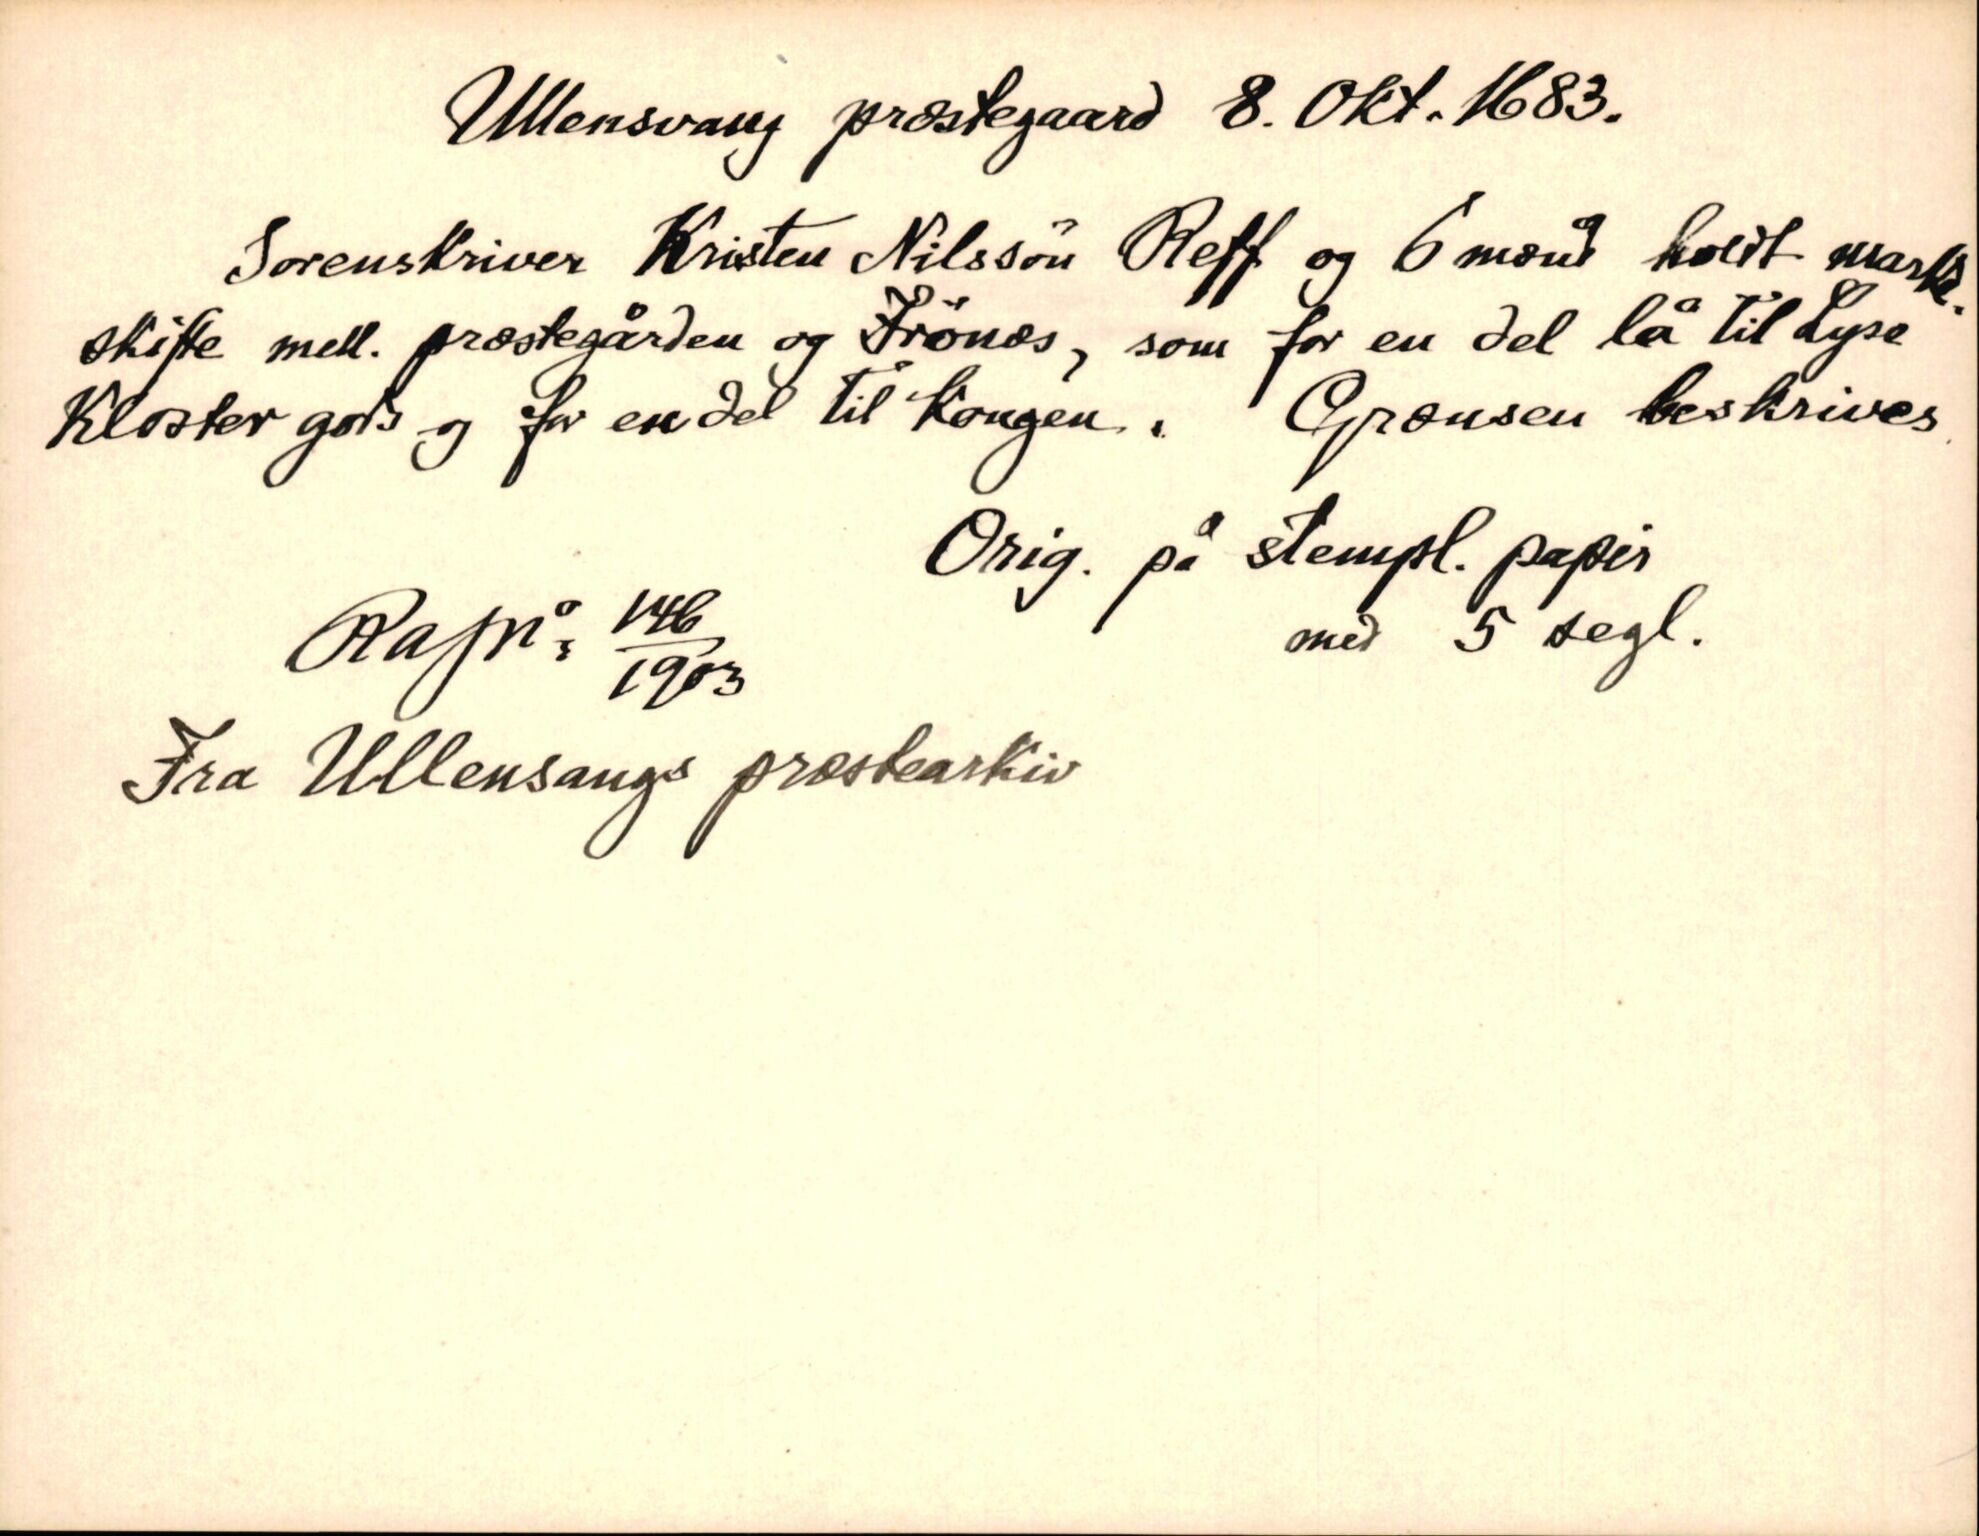 Ullensvang præstegaard 8. Okt. 1683.
Sorenskriver Kristen Nilssön Reff og 6 mænd holdt marke-
skifte mell. præstegården og Frönæs, som for en del lå til Lyse
Kloster gods og for en del til Kongen. Grænsen beskrives
Orig. på stempl. papir
med 5 segl.
Ra jnº: 146/1903
Fra Ullensangs præstearkiv